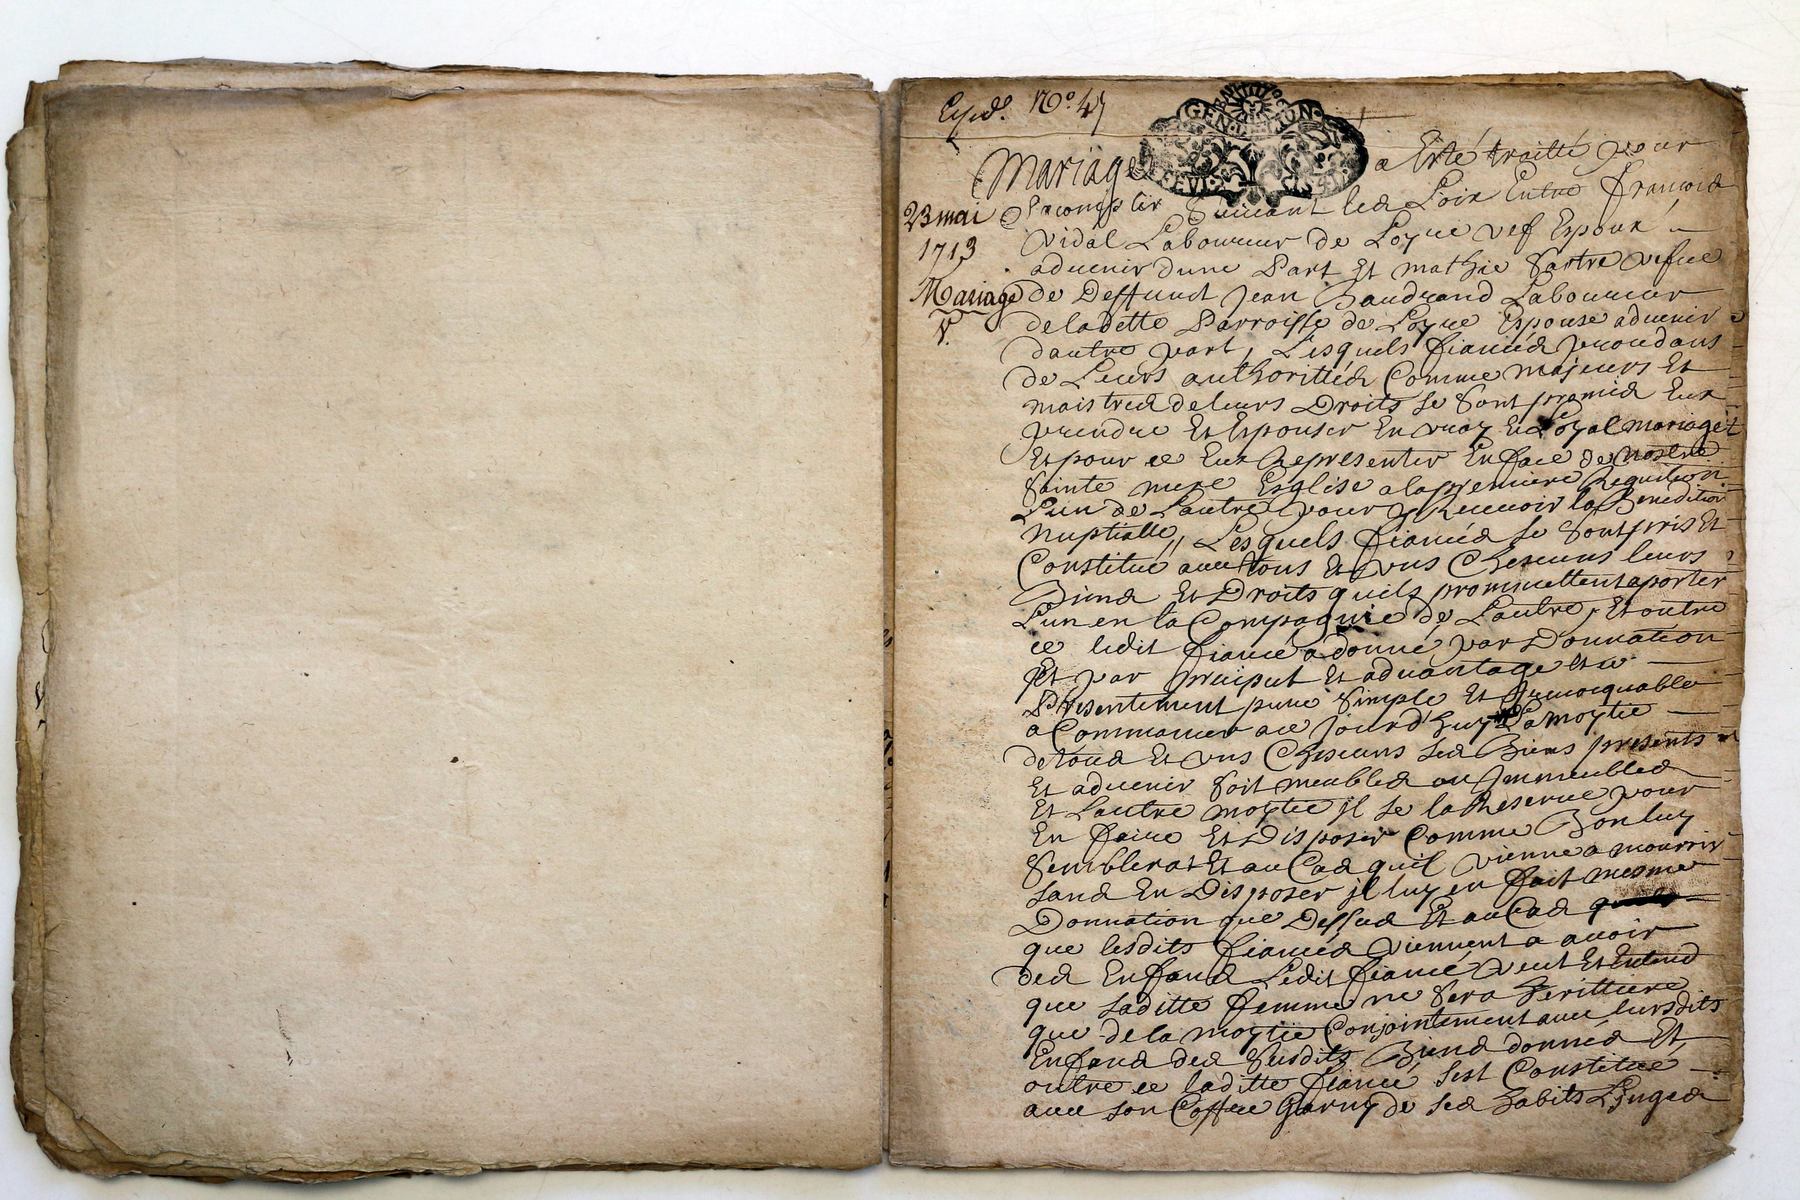 Exped. No. 47
GEN. DE LION
Mariage a Esté traitté pour
23 mai
1713
Mariage
V.
Accomplir suivant les Loix Entre françois
Vidal Laboureur de Loyue vef Espoux
aduenir dune Part Et mathie Sastre vefue
de Deffunct Jean Baudrand Laboureur
de ladette Parroisse de Loyue Espouse aduenir
dautre part, Lesquels fiancés procedans
de Leurs authorittés Comme majeurs Et
maistres de leurs Droits se sont promis Eux
prendre Et Espouser En vray Et Loyal mariage Et
Et pour ce Eux Representer En face de nostre
sainte mere Esglise a la premiere Requisition
Lun de Lautre pour y Receuoir la Benediction
nuptialle, Lesquels fiancés se sont pris Et
Constitué auec tous Et vns Chescuns leurs
Biens Et Droits quils prommettent aporter
Lun en la Compagnie de Lautre, Et outre
ce ledit fiancé a donné par Donnation
Et par preciput Et aduantage Et ce
Presentement pure simple Et Irreuocquable
a Commancer ce jourd'huy La moytié
de tous Et vns Chescuns ses Biens presents
Et aduenir soit meubles ou Jmmeubles
Et Lautre moytié jl se la Reserue pour
En faire Et Disposer Comme Bon luy
semblerat Et au Cas quil vienne a mourrir
sans En Disposer jl luy en fait mesme
Donnation que Dessus Et au Cas
que lesdits fiancés viennent a auoir
des Enfans Ledit fiancé veut Et Entend
que laditte femme ne sera heritiere
que de la moytié Conjointement auec leursdits
Enfans des susdits Biens donnés Et
outre ce laditte fiancé sest Constitué
auec son Coffre Garny de ses habits Linges